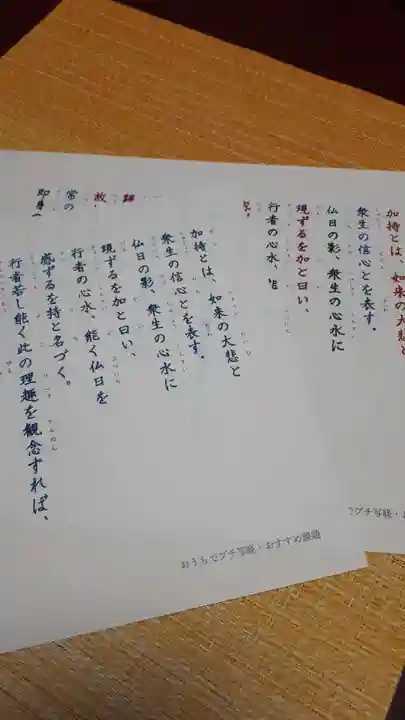 加持とは、如来の大悲と
衆生の信心とを表す。
仏日の影、衆生の心水に
現ずるを加と曰い、
行者の心水、
加持とは、如来の大悲と
衆生の信心とを表す。
仏日の影、衆生の心水に
現ずるを加と曰い、
行者の心水、能く仏日を
感ずるを持と名づく。
行者若し能く此の理趣を観念すれば、
故
常の
即身
プチ写経・お
おうちでプチ写経・おすすめ課題